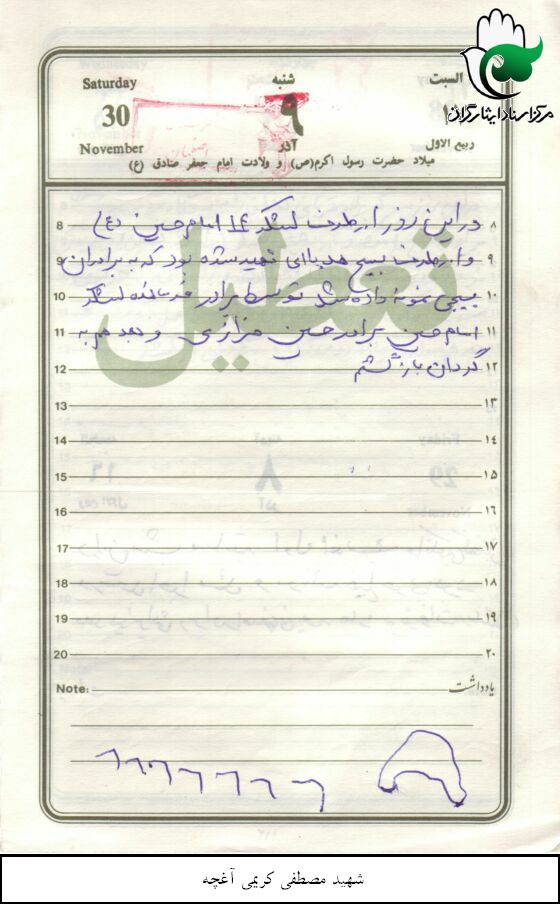 مرکز اسناد ایثارگران
Saturday شنبه السبت
30 ۹
November آذر ربیع الاول
میلاد حضرت رسول اکرم(ص) و ولادت امام جعفر صادق (ع)
تعطیل
8 در این روز از طرف لشکر ۱۴ امام حسین (ع) ۸
9 و از طرف بسیج هدیه‌ای تهیه شده بود که به برادران ۹
10 بسیجی نمونه داده شد توسط برادر فرمانده لشکر ۱۰
11 امام حسین برادر حسین خرازی و بعد هم به ۱۱
12 گردان بازگشتم ۱۲
13 ۱۳
14 ۱۴
15 ۱۵
16 ۱۶
17 ۱۷
18 ۱۸
19 ۱۹
20 ۲۰
Note: یادداشت
شهید مصطفی کریمی آغچه